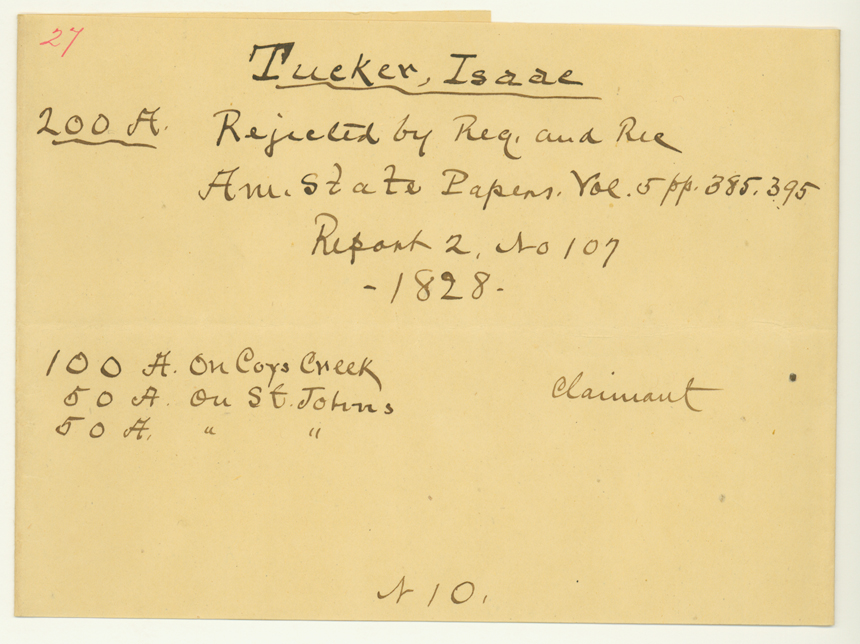 27
Tucker, Isaac
200 A. Rejected by Reg. and Rec
Am. State Papers. Vol. 5 pp. 385. 395
Report 2, No 107
- 1828 -
100 A. On Coys Creek
50 A. On St. Johns
50 A. " "
Claimant
N 10.